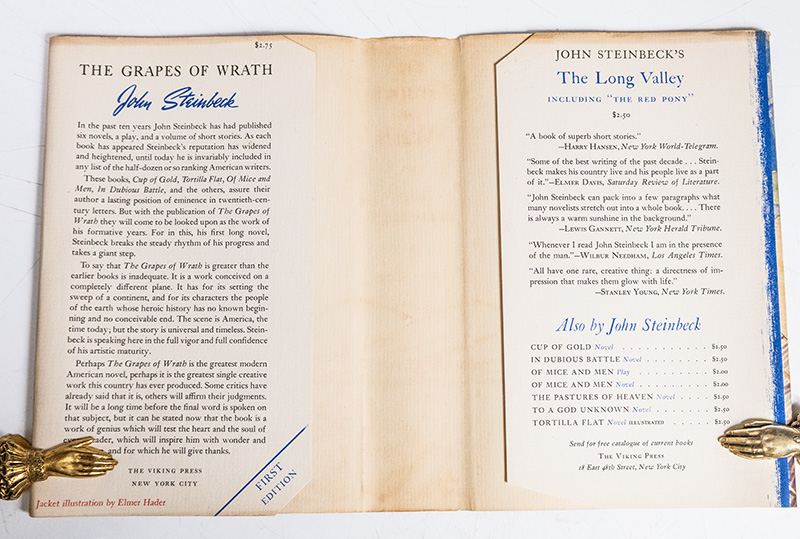 $2.75
THE GRAPES OF WRATH
John Steinbeck
In the past ten years John Steinbeck has had published
six novels, a play, and a volume of short stories. As each
book has appeared Steinbeck's reputation has widened
and heightened, until today he is invariably included in
any list of the half-dozen or so ranking American writers.
These books, Cup of Gold, Tortilla Flat, Of Mice and
Men, In Dubious Battle, and the others, assure their
author a lasting position of eminence in twentieth-cen-
tury letters. But with the publication of The Grapes of
Wrath they will come to be looked upon as the work of
his formative years. For in this, his first long novel,
Steinbeck breaks the steady rhythm of his progress and
takes a giant step.
To say that The Grapes of Wrath is greater than the
earlier books is inadequate. It is a work conceived on a
completely different plane. It has for its setting the
sweep of a continent, and for its characters the people
of the earth whose heroic history has no known begin-
ning and no conceivable end. The scene is America, the
time today; but the story is universal and timeless. Stein-
beck is speaking here in the full vigor and full confidence
of his artistic maturity.
Perhaps The Grapes of Wrath is the greatest modern
American novel, perhaps it is the greatest single creative
work this country has ever produced. Some critics have
already said that it is, others will affirm their judgments.
It will be a long time before the final word is spoken on
that subject, but it can be stated now that the book is a
work of genius which will test the heart and the soul of
reader, which will inspire him with wonder and
and for which he will give thanks.
THE VIKING PRESS
NEW YORK CITY
Jacket illustration by Elmer Hader
FIRST
EDITION
JOHN STEINBECK'S
The Long Valley
INCLUDING "THE RED PONY"
$2.50
"A book of superb short stories."
—HARRY HANSEN, New York World-Telegram.
"Some of the best writing of the past decade . . . Stein-
beck makes his country live and his people live as a part
of it."—ELMER DAVIS, Saturday Review of Literature.
"John Steinbeck can pack into a few paragraphs what
many novelists stretch out into a whole book. . . . There
is always a warm sunshine in the background."
—LEWIS GANNETT, New York Herald Tribune.
"Whenever I read John Steinbeck I am in the presence
of the man."—WILBUR NEEDHAM, Los Angeles Times.
"All have one rare, creative thing: a directness of im-
pression that makes them glow with life."
—STANLEY YOUNG, New York Times.
Also by John Steinbeck
CUP OF GOLD Novel . . . . . . . . . . $2.50
IN DUBIOUS BATTLE Novel . . . . . . . $2.50
OF MICE AND MEN Play . . . . . . . . $2.00
OF MICE AND MEN Novel . . . . . . . . $2.00
THE PASTURES OF HEAVEN Novel . . . . $2.50
TO A GOD UNKNOWN Novel . . . . . . . $2.50
TORTILLA FLAT Novel ILLUSTRATED . . . . . $2.50
Send for free catalogue of current books
THE VIKING PRESS
18 East 48th Street, New York City